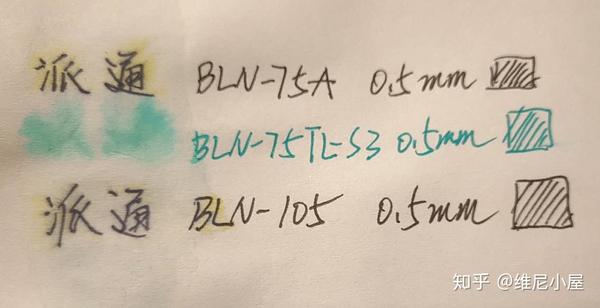 派通 BLN-75A 0.5mm
BLN-75TL-S3 0.5mm
派通 BLN-105 0.5mm
知乎 @维尼小屋